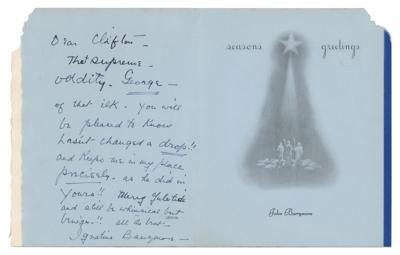 Dear Clifton -
That supreme -
oddity - George -
of that ilk - you will
be pleased to know
hasn't changed a drop!!
and keeps me in my place
precisely - as he did in
yours!! Merry Yuletide
and still be whimsical but
benign!! all the best -
Ignatius Barrymore -
seasons greetings
John Barrymore